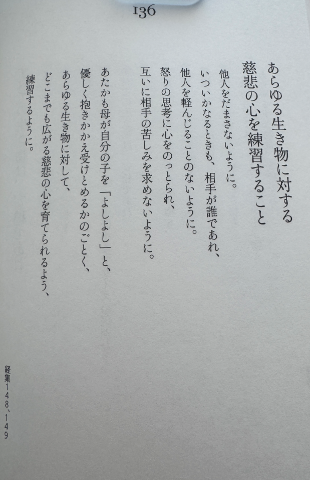 136
あらゆる生き物に対する
慈悲の心を練習すること
他人をだまさないように。
いついかなるときも、相手が誰であれ、
他人を軽んじることのないように。
怒りの思考に心をのっとられ、
互いに相手の苦しみを求めないように。
あたかも母が自分の子を「よしよし」と、
優しく抱きかかえ受けとめるかのごとく、
あらゆる生き物に対して、
どこまでも広がる慈悲の心を育てられるよう、
練習するように。
経集148,149